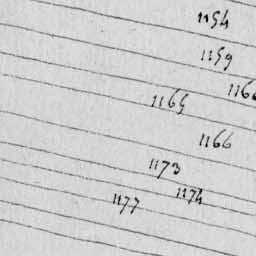 1154
1159
1165
1166
1173
1174
1177